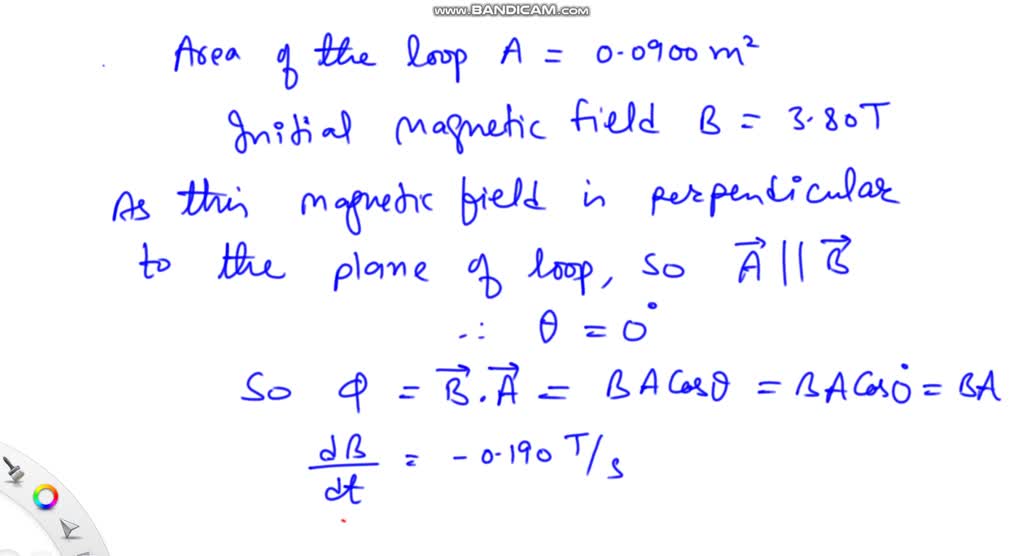 www.BANDICAM.com
Area of the loop A = 0.0900 m²
Initial magnetic field B = 3.80T
As this magnetic field is perpendicular
to the plane of loop, so A⃗ || B⃗
∴ θ = 0°
So φ = B⃗ . A⃗ = BA Cosθ = BA Cos0° = BA
dB/dt = - 0.190 T/s